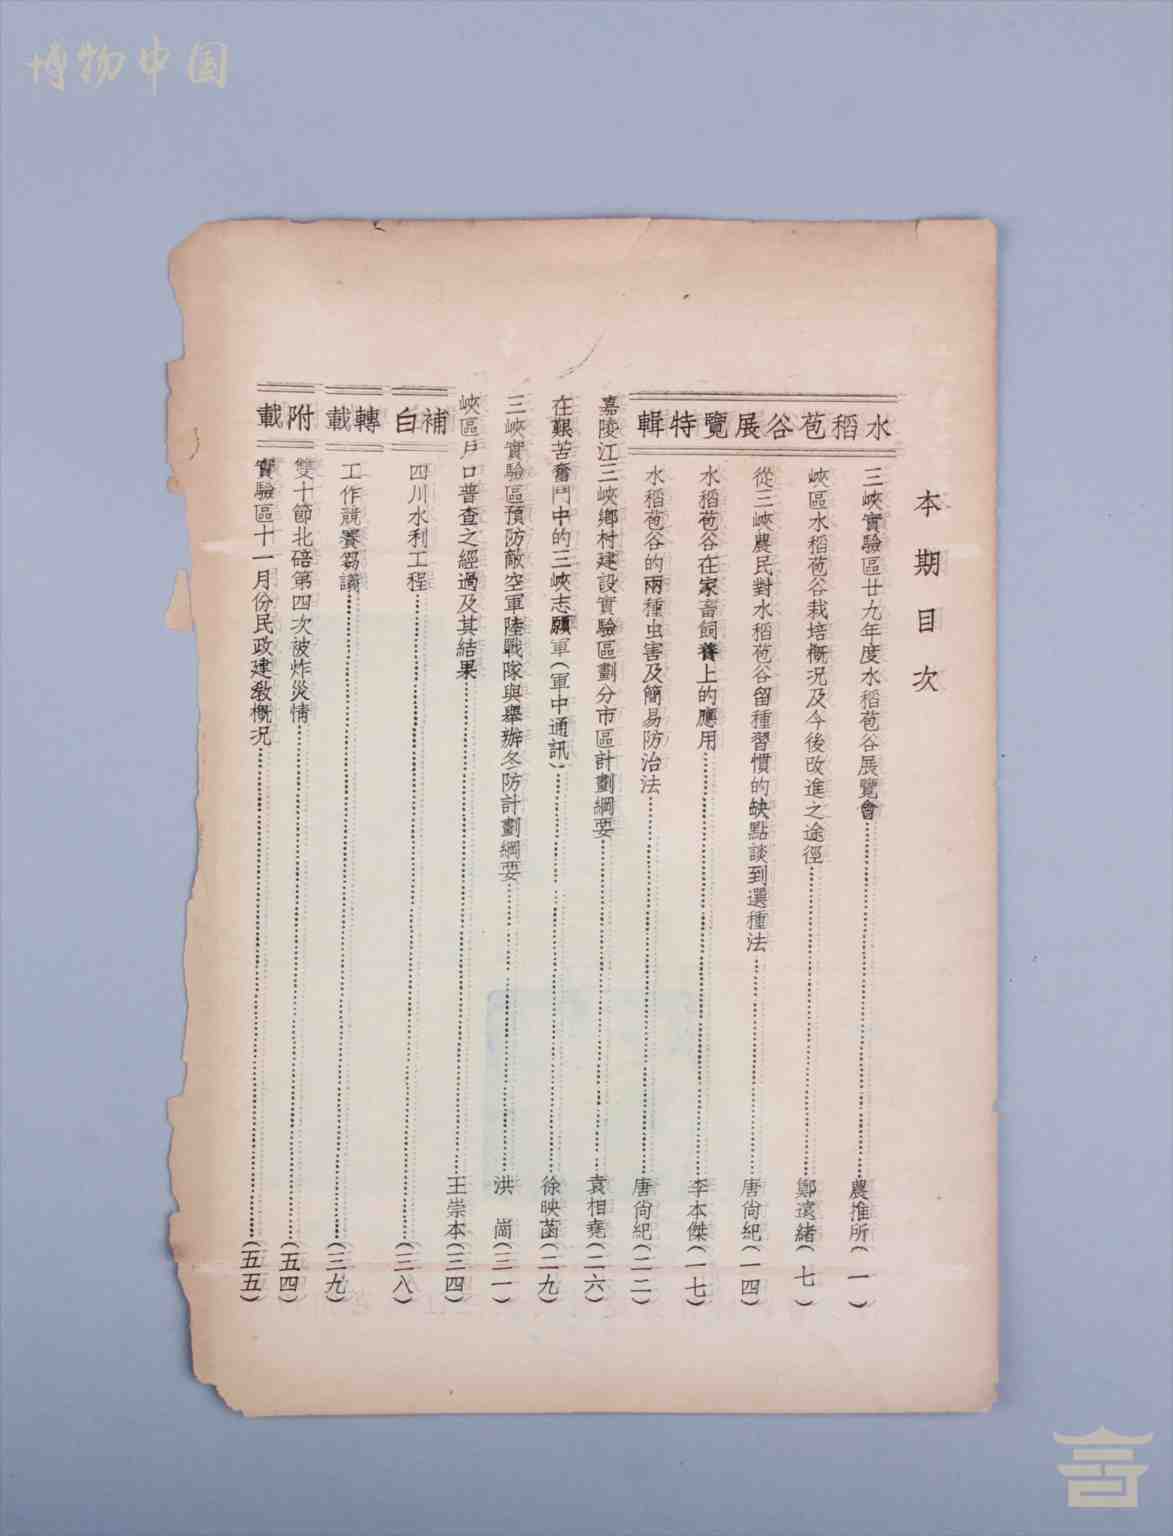 博物中国
本期目次
水稻苞谷展覽特輯
三峽實驗區廿九年度水稻苞谷展覽會……農推所(一)
峽區水稻苞谷栽培概况及今後改進之途徑……鄭遠緒(七)
從三峽農民對水稻苞谷留種習慣的缺點談到選種法……唐尙紀(一四)
水稻苞谷在家畜飼養上的應用……李本傑(一七)
水稻苞谷的兩種虫害及簡易防治法……唐尙紀(二二)
嘉陵江三峽鄉村建設實驗區劃分市區計劃綱要……袁相堯(二六)
在艱苦奮鬥中的三峽志願軍(軍中通訊)……徐映菡(二九)
三峽實驗區預防敵空軍陸戰隊與舉辦冬防計劃綱要……洪崗(三一)
峽區戶口普查之經過及其結果……王崇本(三四)
補白
四川水利工程……(三八)
轉載
工作競賽芻議……(三九)
附載
雙十節北碚第四次被炸災情……(五四)
實驗區十一月份民政建敎概况……(五五)